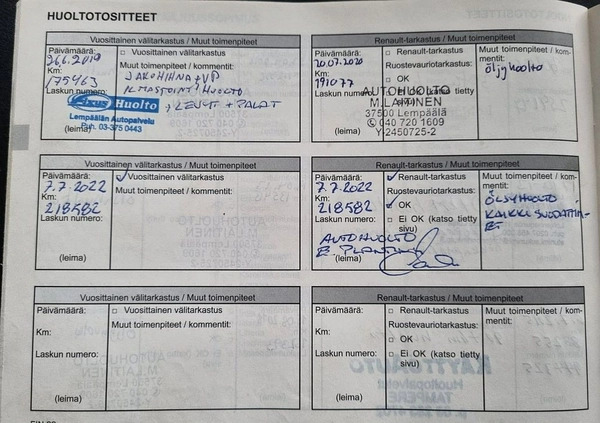 HUOLTOTOSITTEET
Vuosittainen välitarkastus / Muut toimenpiteet
Päivämäärä:
26.6.2019
Km:
175463
Laskun numero:
(leima)
□ Vuosittainen välitarkastus
Muut toimenpiteet / kommentit:
JAKOHIHNA + VP
ILMASTOINTIHUOLTO
+ LEVYT + PALAT
Axus Huolto
Lempäälän Autopalvelu
Puh. 03-375 0443
Renault-tarkastus / Muut toimenpiteet
Päivämäärä:
20.07.2020
Km:
191077
Laskun numero:
(leima)
□ Renault-tarkastus
Ruostevauriotarkastus:
□ OK
AUTOHUOLTO
M.LAITINEN
37500 Lempäälä
040 720 1609
Y-2450725-2
Muut toimenpiteet / kom-
mentit:
öljyhuolto
Vuosittainen välitarkastus / Muut toimenpiteet
Päivämäärä:
7.7.2022
Km:
218582
Laskun numero:
(leima)
Vuosittainen välitarkastus
Muut toimenpiteet / kommentit:
Renault-tarkastus / Muut toimenpiteet
Päivämäärä:
7.7.2022
Km:
218582
Laskun numero:
AUTOHUOLTO
(leima)
Renault-tarkastus
Ruostevauriotarkastus:
OK
□ Ei OK (katso tietty
sivu)
Muut toimenpiteet / kom-
mentit:
ÖLJYHUOLTO
KAIKKI SUODATTIM-
ET
Vuosittainen välitarkastus / Muut toimenpiteet
Päivämäärä:
Km:
Laskun numero:
(leima)
□ Vuosittainen välitarkastus
Muut toimenpiteet / kommentit:
Renault-tarkastus / Muut toimenpiteet
Päivämäärä:
Km:
Laskun numero:
(leima)
□ Renault-tarkastus
Ruostevauriotarkastus:
□ OK
□ Ei OK (katso tietty
sivu)
Muut toimenpiteet / kom-
mentit: